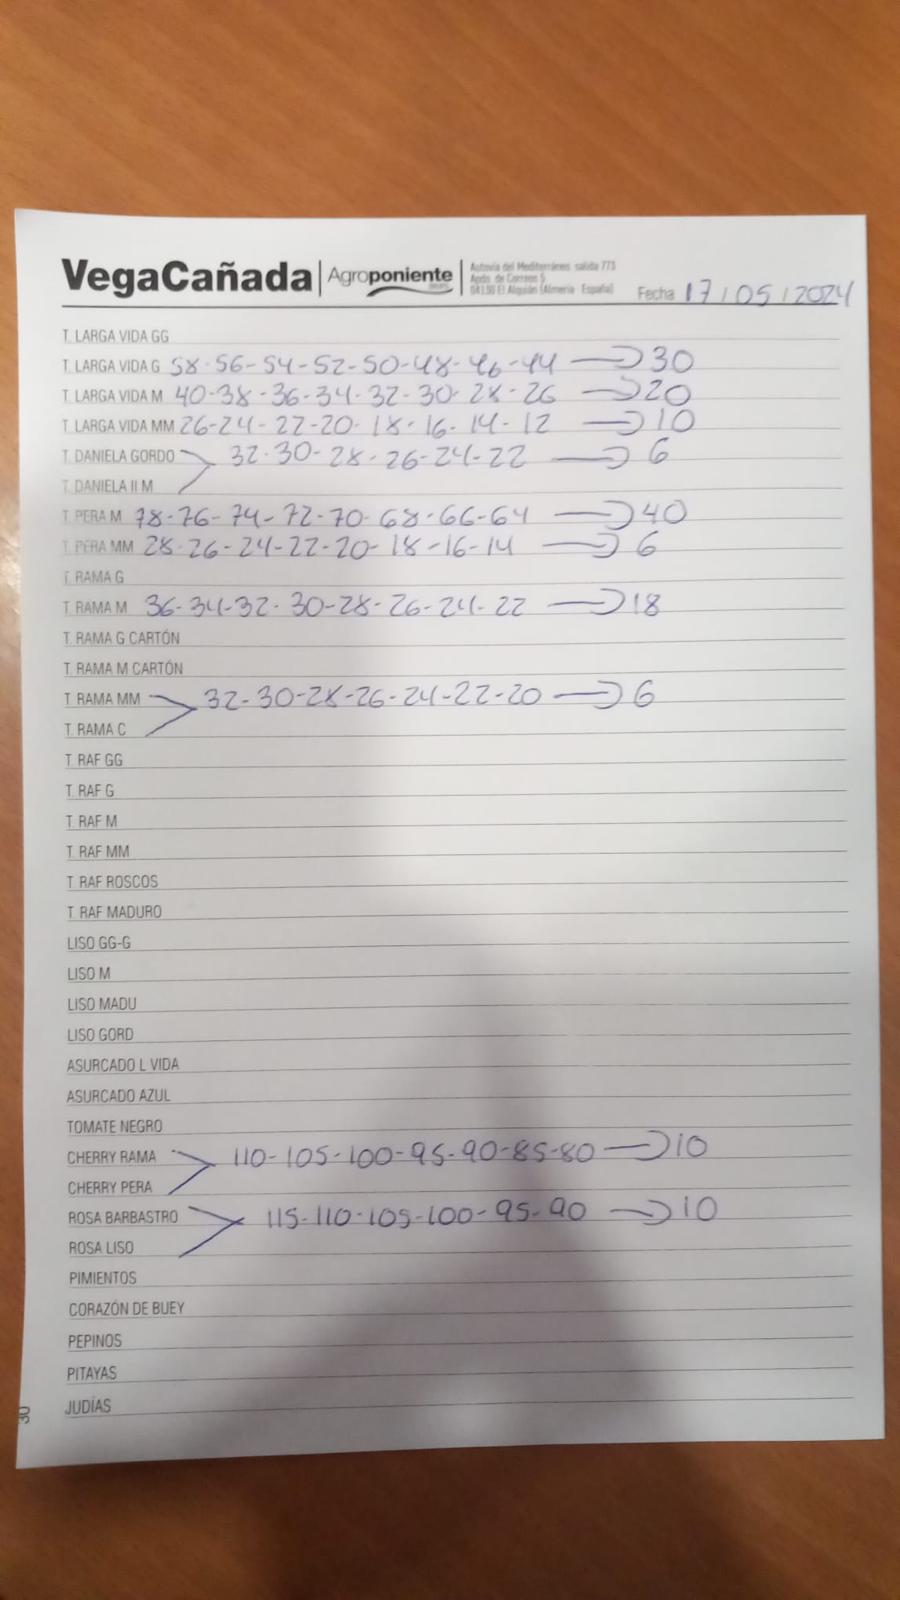 VegaCañada | Agroponiente
Autovía del Mediterráneo, salida 773
Apdo. de Correos 5
04130 El Alquián (Almería - España)
Fecha 17/05/2024
T. LARGA VIDA GG
T. LARGA VIDA G 58-56-54-52-50-48-46-44 → 30
T. LARGA VIDA M 40-38-36-34-32-30-28-26 → 20
T. LARGA VIDA MM 26-24-22-20-18-16-14-12 → 10
T. DANIELA GORDO 32-30-28-26-24-22 → 6
T. DANIELA II M
T. PERA M 78-76-74-72-70-68-66-64 → 40
T. PERA MM 28-26-24-22-20-18-16-14 → 6
T. RAMA G
T. RAMA M 36-34-32-30-28-26-24-22 → 18
T. RAMA G CARTÓN
T. RAMA M CARTÓN
T. RAMA MM 32-30-28-26-24-22-20 → 6
T. RAMA C
T. RAF GG
T. RAF G
T. RAF M
T. RAF MM
T. RAF ROSCOS
T. RAF MADURO
LISO GG-G
LISO M
LISO MADU
LISO GORD
ASURCADO L VIDA
ASURCADO AZUL
TOMATE NEGRO
CHERRY RAMA 110-105-100-95-90-85-80 → 10
CHERRY PERA
ROSA BARBASTRO 115-110-105-100-95-90 → 10
ROSA LISO
PIMIENTOS
CORAZÓN DE BUEY
PEPINOS
PITAYAS
JUDÍAS
30